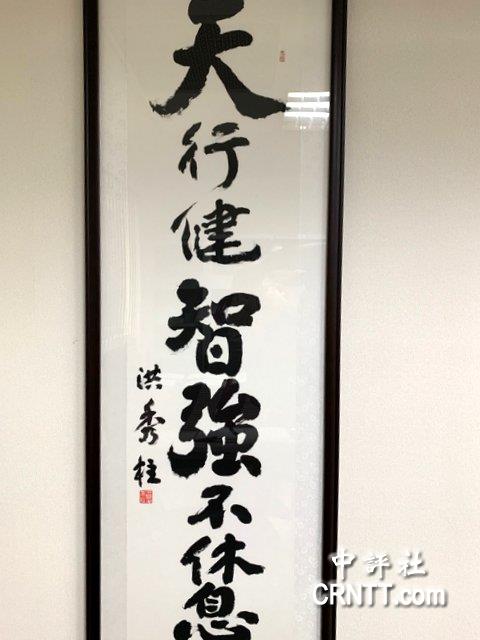 天行健智強不休息
洪秀柱
中評社
CRNTT.com